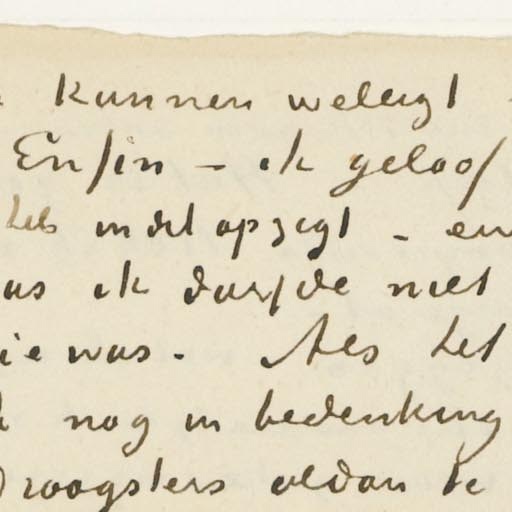 kunnen
Enfin – ik geloof
heb in dit opzigt – en
as ik durfde niet
ie was. Als het
nog in bedenking
Droogsters aldan te